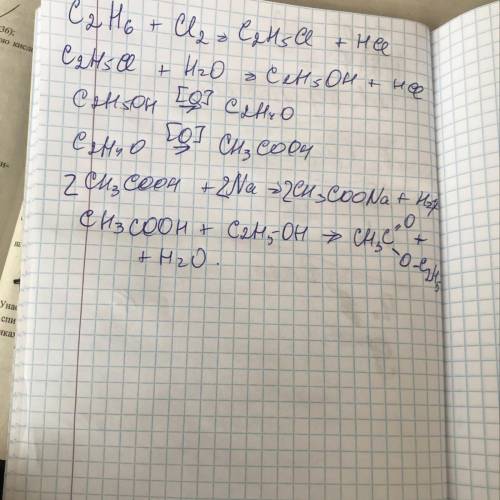 C2H6 + Cl2 → C2H5Cl + HCl
C2H5Cl + H2O → C2H5OH + HCl
C2H5OH [O]→ C2H4O
C2H4O [O]→ CH3COOH
2CH3COOH + 2Na → 2CH3COONa + H2↑
CH3COOH + C2H5OH → CH3C=O +
O-C2H5
+ H2O.
36);